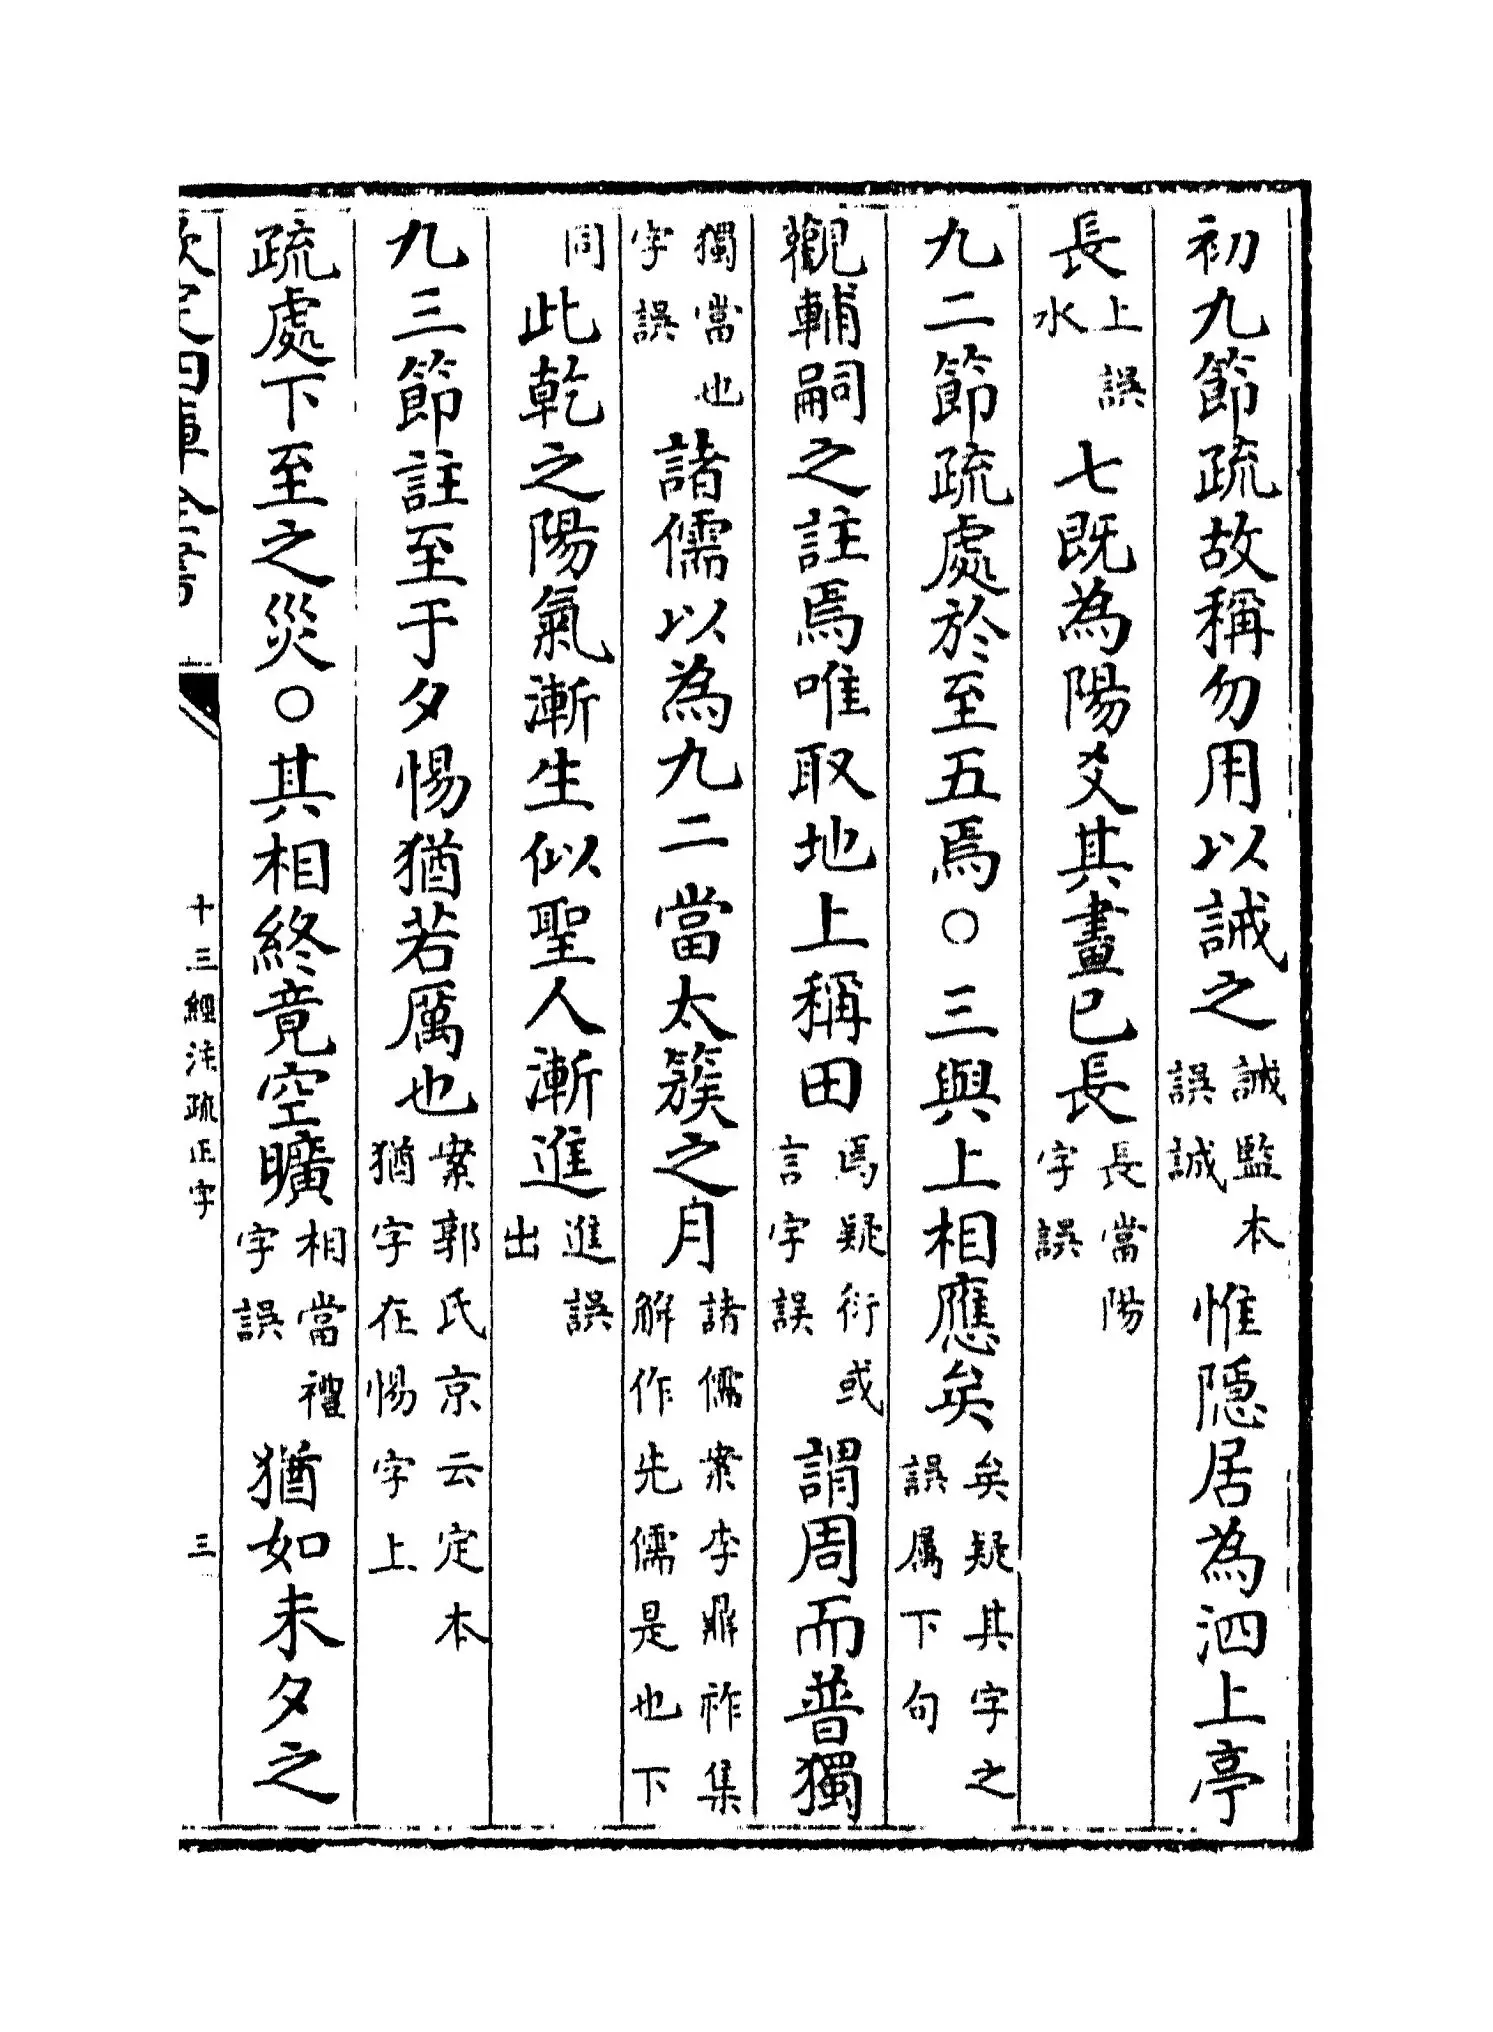 初九節疏故稱勿用以誡之誡監本誤誠惟隱居為泗上亭
長上誤水七既為陽爻其畫已長長當陽字誤
九二節疏處於至五焉○三與上相應矣矣疑其字之誤属下句
觀輔嗣之註焉唯取地上稱田焉疑衍或言字誤謂周而普獨
獨當也字誤諸儒以為九二當太簇之月諸儒案李鼎祚集解作先儒是也下
同此乾之陽氣漸生似聖人漸進進誤出
九三節註至于夕惕猶若厲也案郭氏京云定本猶字在惕字上
疏處下至之災○其相終竟空曠相當禮字誤猶如未夕之
欽定四庫全書 十三經注疏正字 三